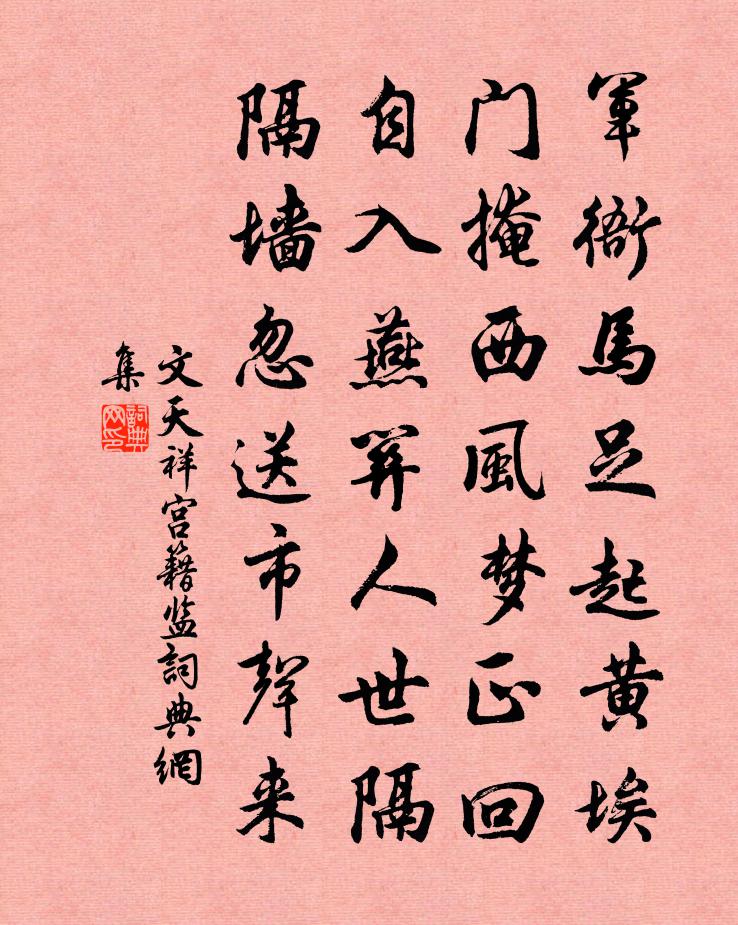 軍衙馬足起黄埃
门掩西風梦正回
自入燕笄人世隔
隔墙忽送市聲来
文天祥宫籍监詞典網
集
詞典网印